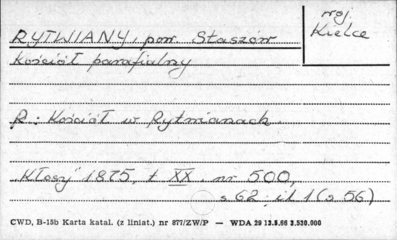 woj.
Kielce
RYTWIANY, pow. Staszów
Kościół parafialny
R: Kościół w Rytwianach.
"Kłosy" 1875, t XX. nr 500,
s 62; il 1 (s. 56)
CWD, B-15b Karta katal. (z liniat.) nr 877/ZW/P — WDA 29 13.5.66 2.520.000